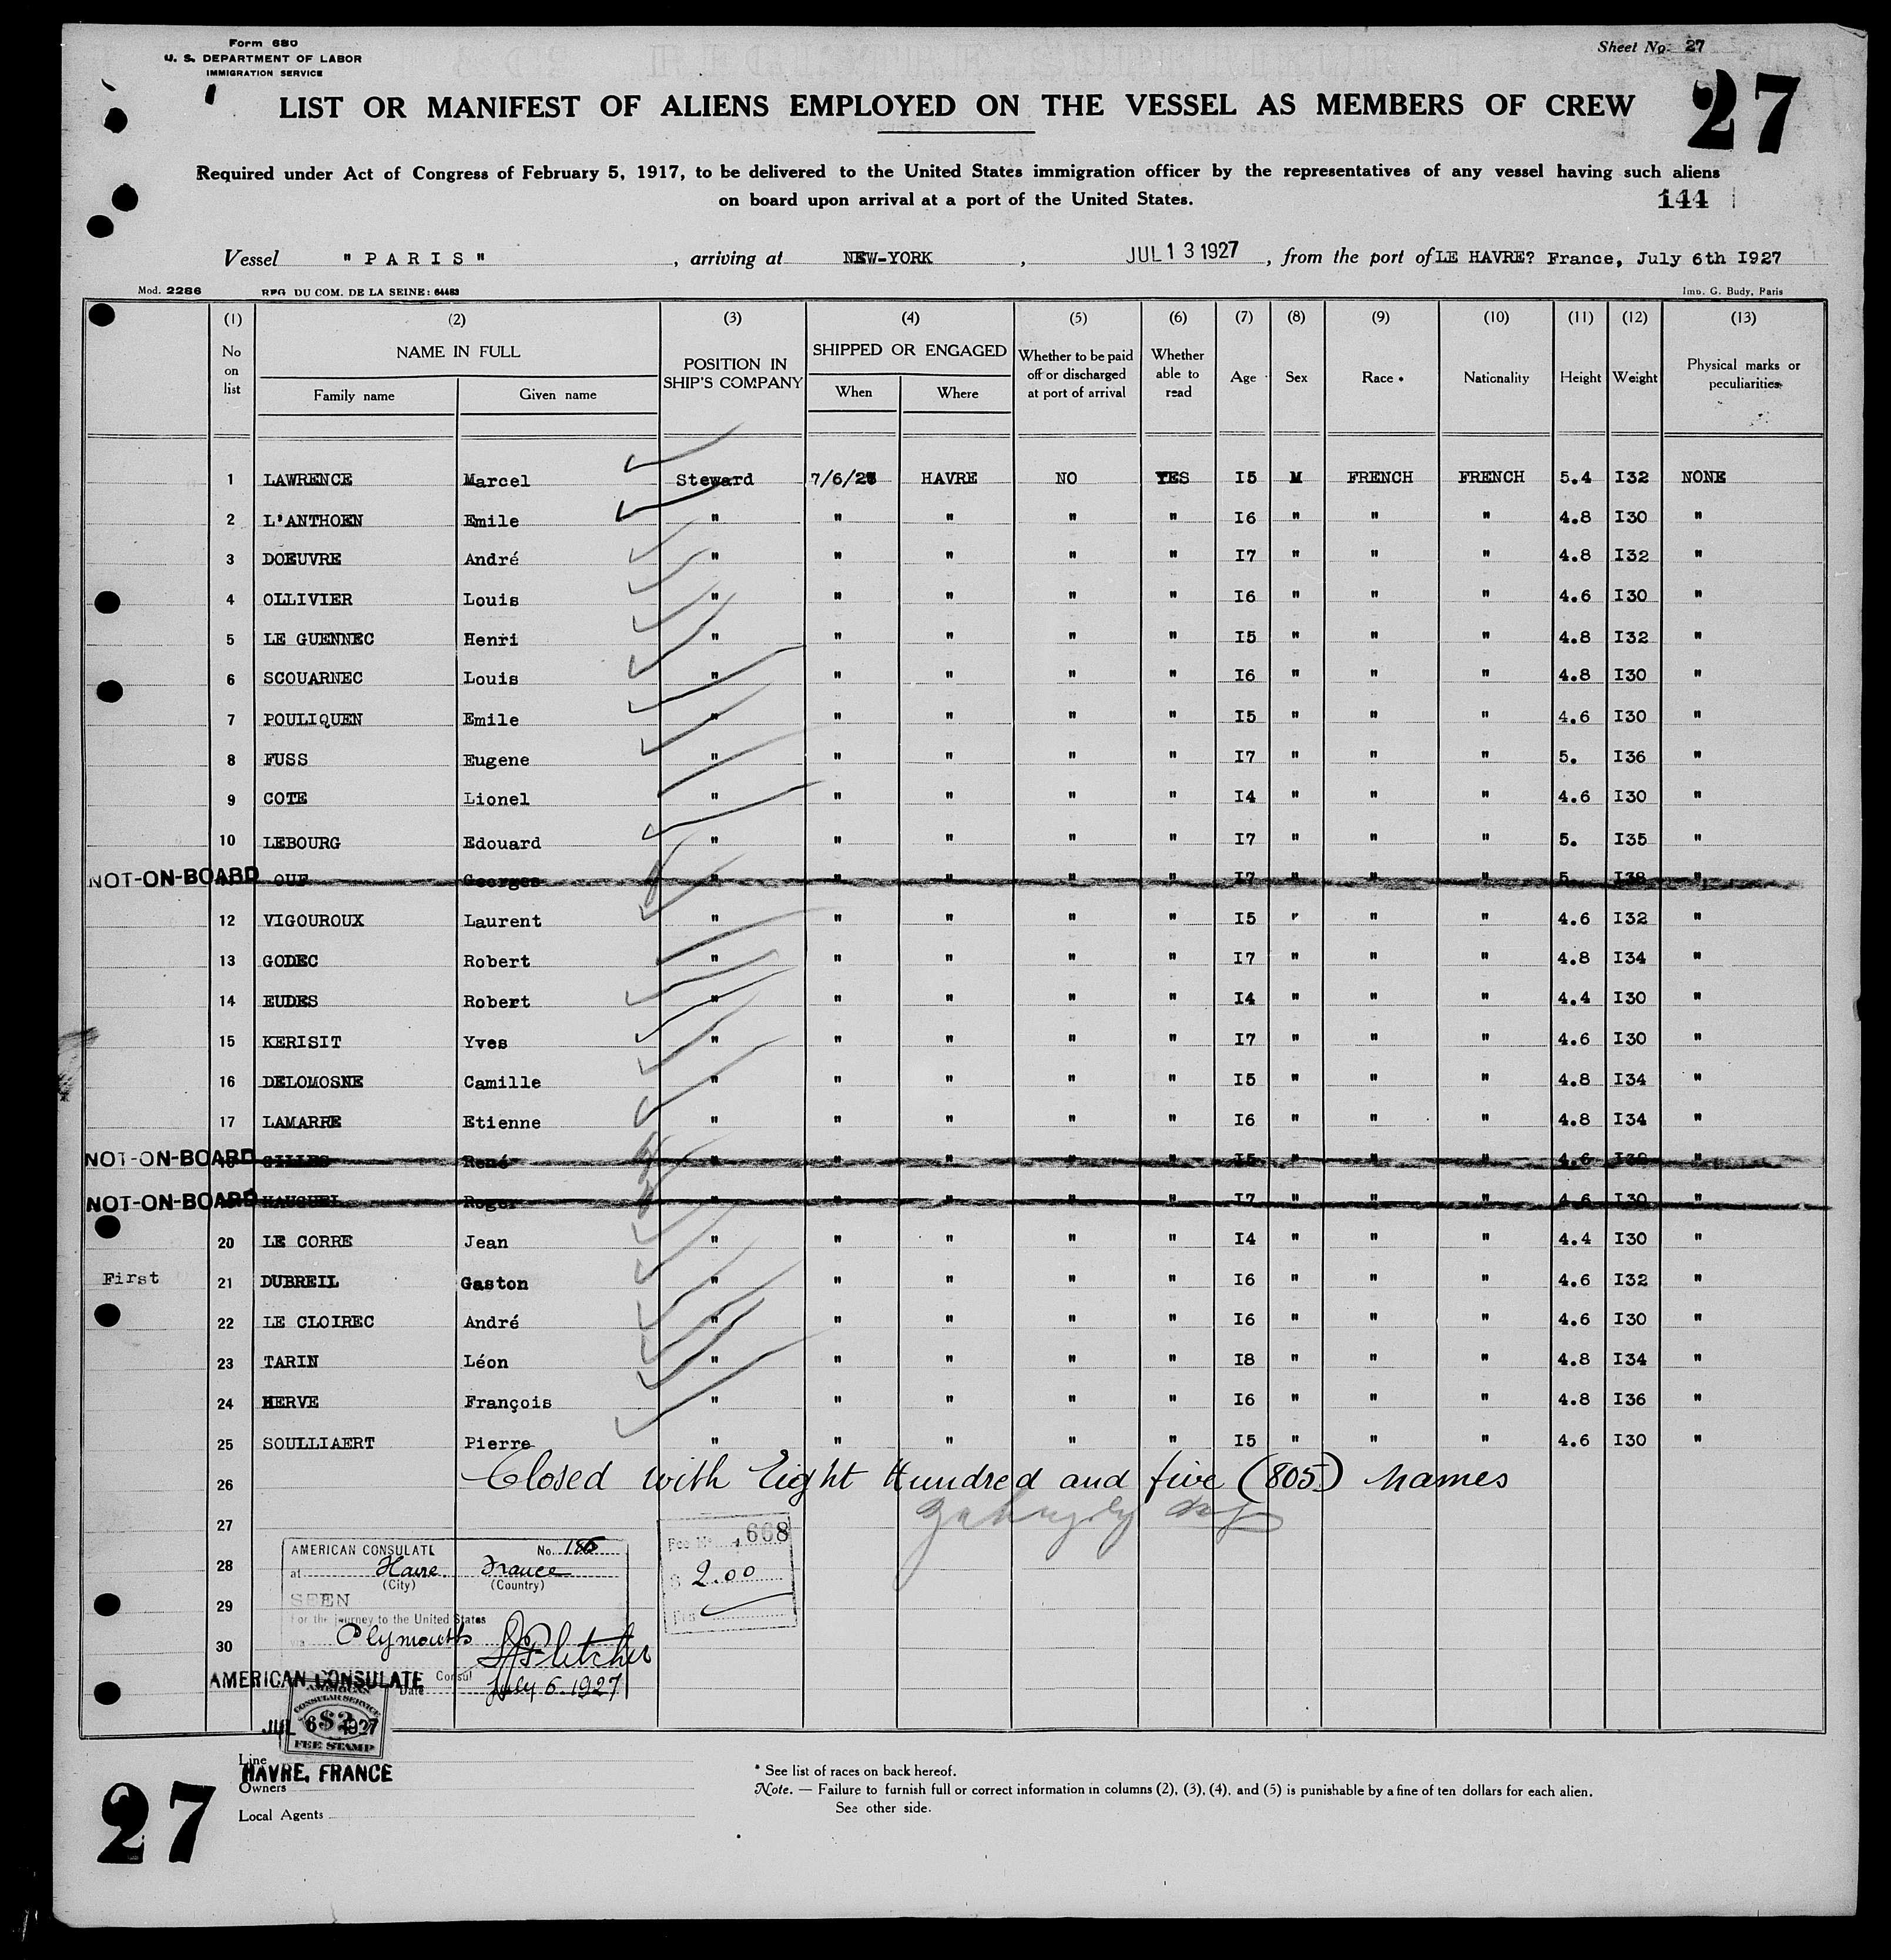 Form 680
U. S. DEPARTMENT OF LABOR
IMMIGRATION SERVICE
Sheet No. 27
27
LIST OR MANIFEST OF ALIENS EMPLOYED ON THE VESSEL AS MEMBERS OF CREW
Required under Act of Congress of February 5, 1917, to be delivered to the United States immigration officer by the representatives of any vessel having such aliens
on board upon arrival at a port of the United States.
144
Vessel " P A R I S " , arriving at NEW-YORK , JUL 13 1927 , from the port of LE HAVRE? France, July 6th I927
Mod. 2286 REG DU COM. DE LA SEINE: 64483 Imp. G. Budy, Paris
(1) (2) (3) (4) (5) (6) (7) (8) (9) (10) (11) (12) (13)
No on list NAME IN FULL Family name Given name POSITION IN SHIP'S COMPANY SHIPPED OR ENGAGED When Where Whether to be paid off or discharged at port of arrival Whether able to read Age Sex Race • Nationality Height Weight Physical marks or peculiarities
1 LAWRENCE Marcel Steward 7/6/27 HAVRE NO YES I5 M FRENCH FRENCH 5.4 I32 NONE
2 L'ANTHOEN Emile " " " " " I6 " " " 4.8 I30 "
3 DOEUVRE André " " " " " I7 " " " 4.8 I32 "
4 OLLIVIER Louis " " " " " I6 " " " 4.6 I30 "
5 LE GUENNEC Henri " " " " " I5 " " " 4.8 I32 "
6 SCOUARNEC Louis " " " " " I6 " " " 4.8 I30 "
7 POULIQUEN Emile " " " " " I5 " " " 4.6 I30 "
8 FUSS Eugene " " " " " I7 " " " 5. I36 "
9 COTE Lionel " " " " " I4 " " " 4.6 I30 "
10 LEBOURG Edouard " " " " " I7 " " " 5. I35 "
NOT-ON-BOARD OUF Georges " " " " " I7 " " " 5. I38 "
12 VIGOUROUX Laurent " " " " " I5 " " " 4.6 I32 "
13 GODEC Robert " " " " " I7 " " " 4.8 I34 "
14 EUDES Robert " " " " " I4 " " " 4.4 I30 "
15 KERISIT Yves " " " " " I7 " " " 4.6 I30 "
16 DELOMOSNE Camille " " " " " I5 " " " 4.8 I34 "
17 LAMARRE Etienne " " " " " I6 " " " 4.8 I34 "
NOT-ON-BOARD GILLES René " " " " " I5 " " " 4.6 "
NOT-ON-BOARD HAUGUEL Roger " " " " " I7 " " " 4.6 I30 "
20 LE CORRE Jean " " " " " I4 " " " 4.4 I30 "
First 21 DUBREIL Gaston " " " " " I6 " " " 4.6 I32 "
22 LE CLOIREC André " " " " " I6 " " " 4.6 I30 "
23 TARIN Léon " " " " " I8 " " " 4.8 I34 "
24 HERVE François " " " " " I6 " " " 4.8 I36 "
25 SOULLIAERT Pierre " " " " " I5 " " " 4.6 I30 "
26 Closed with Eight Hundred and five (805) names
27
28
29
30
AMERICAN CONSULATE No. 186
at Havre (City) France (Country)
SEEN
For the journey to the United States
via Plymouth
Consul
Date July 6. 1927
Fee No. 668
$ 2.00
AMERICAN CONSULATE
JUL 6 1927
AMERICAN CONSULAR SERVICE $2 FEE STAMP
HAVRE, FRANCE
Line
Owners
Local Agents
* See list of races on back hereof.
Note. — Failure to furnish full or correct information in columns (2), (3), (4), and (5) is punishable by a fine of ten dollars for each alien.
See other side.
27